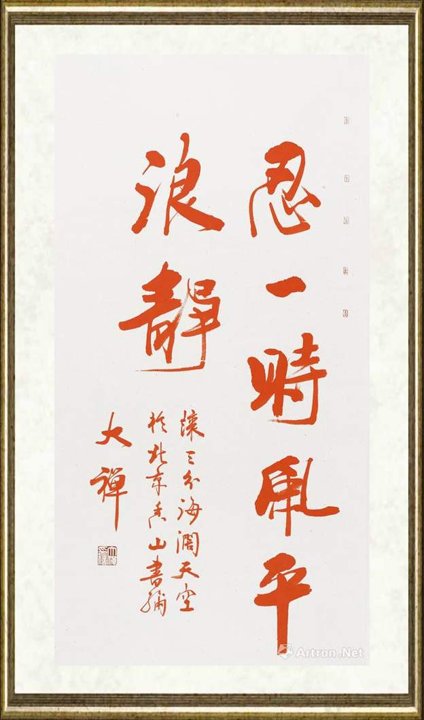 忍一時風平
浪靜
讓三分海闊天空
於北京香山書
大禪
Artron.Net